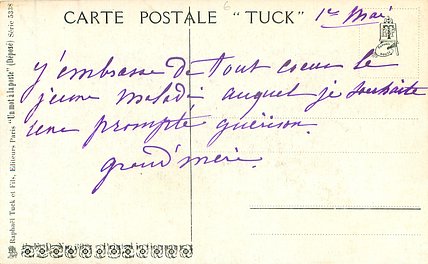 CARTE POSTALE "TUCK" 1er Mai
j'embrasse de tout coeur le
jeune malade auquel je souhaite
une prompte guérison.
grand'mère
Raphaël Tuck et Fils, Editeurs Paris "Un mot à la poste" (Déposé) Série 5338